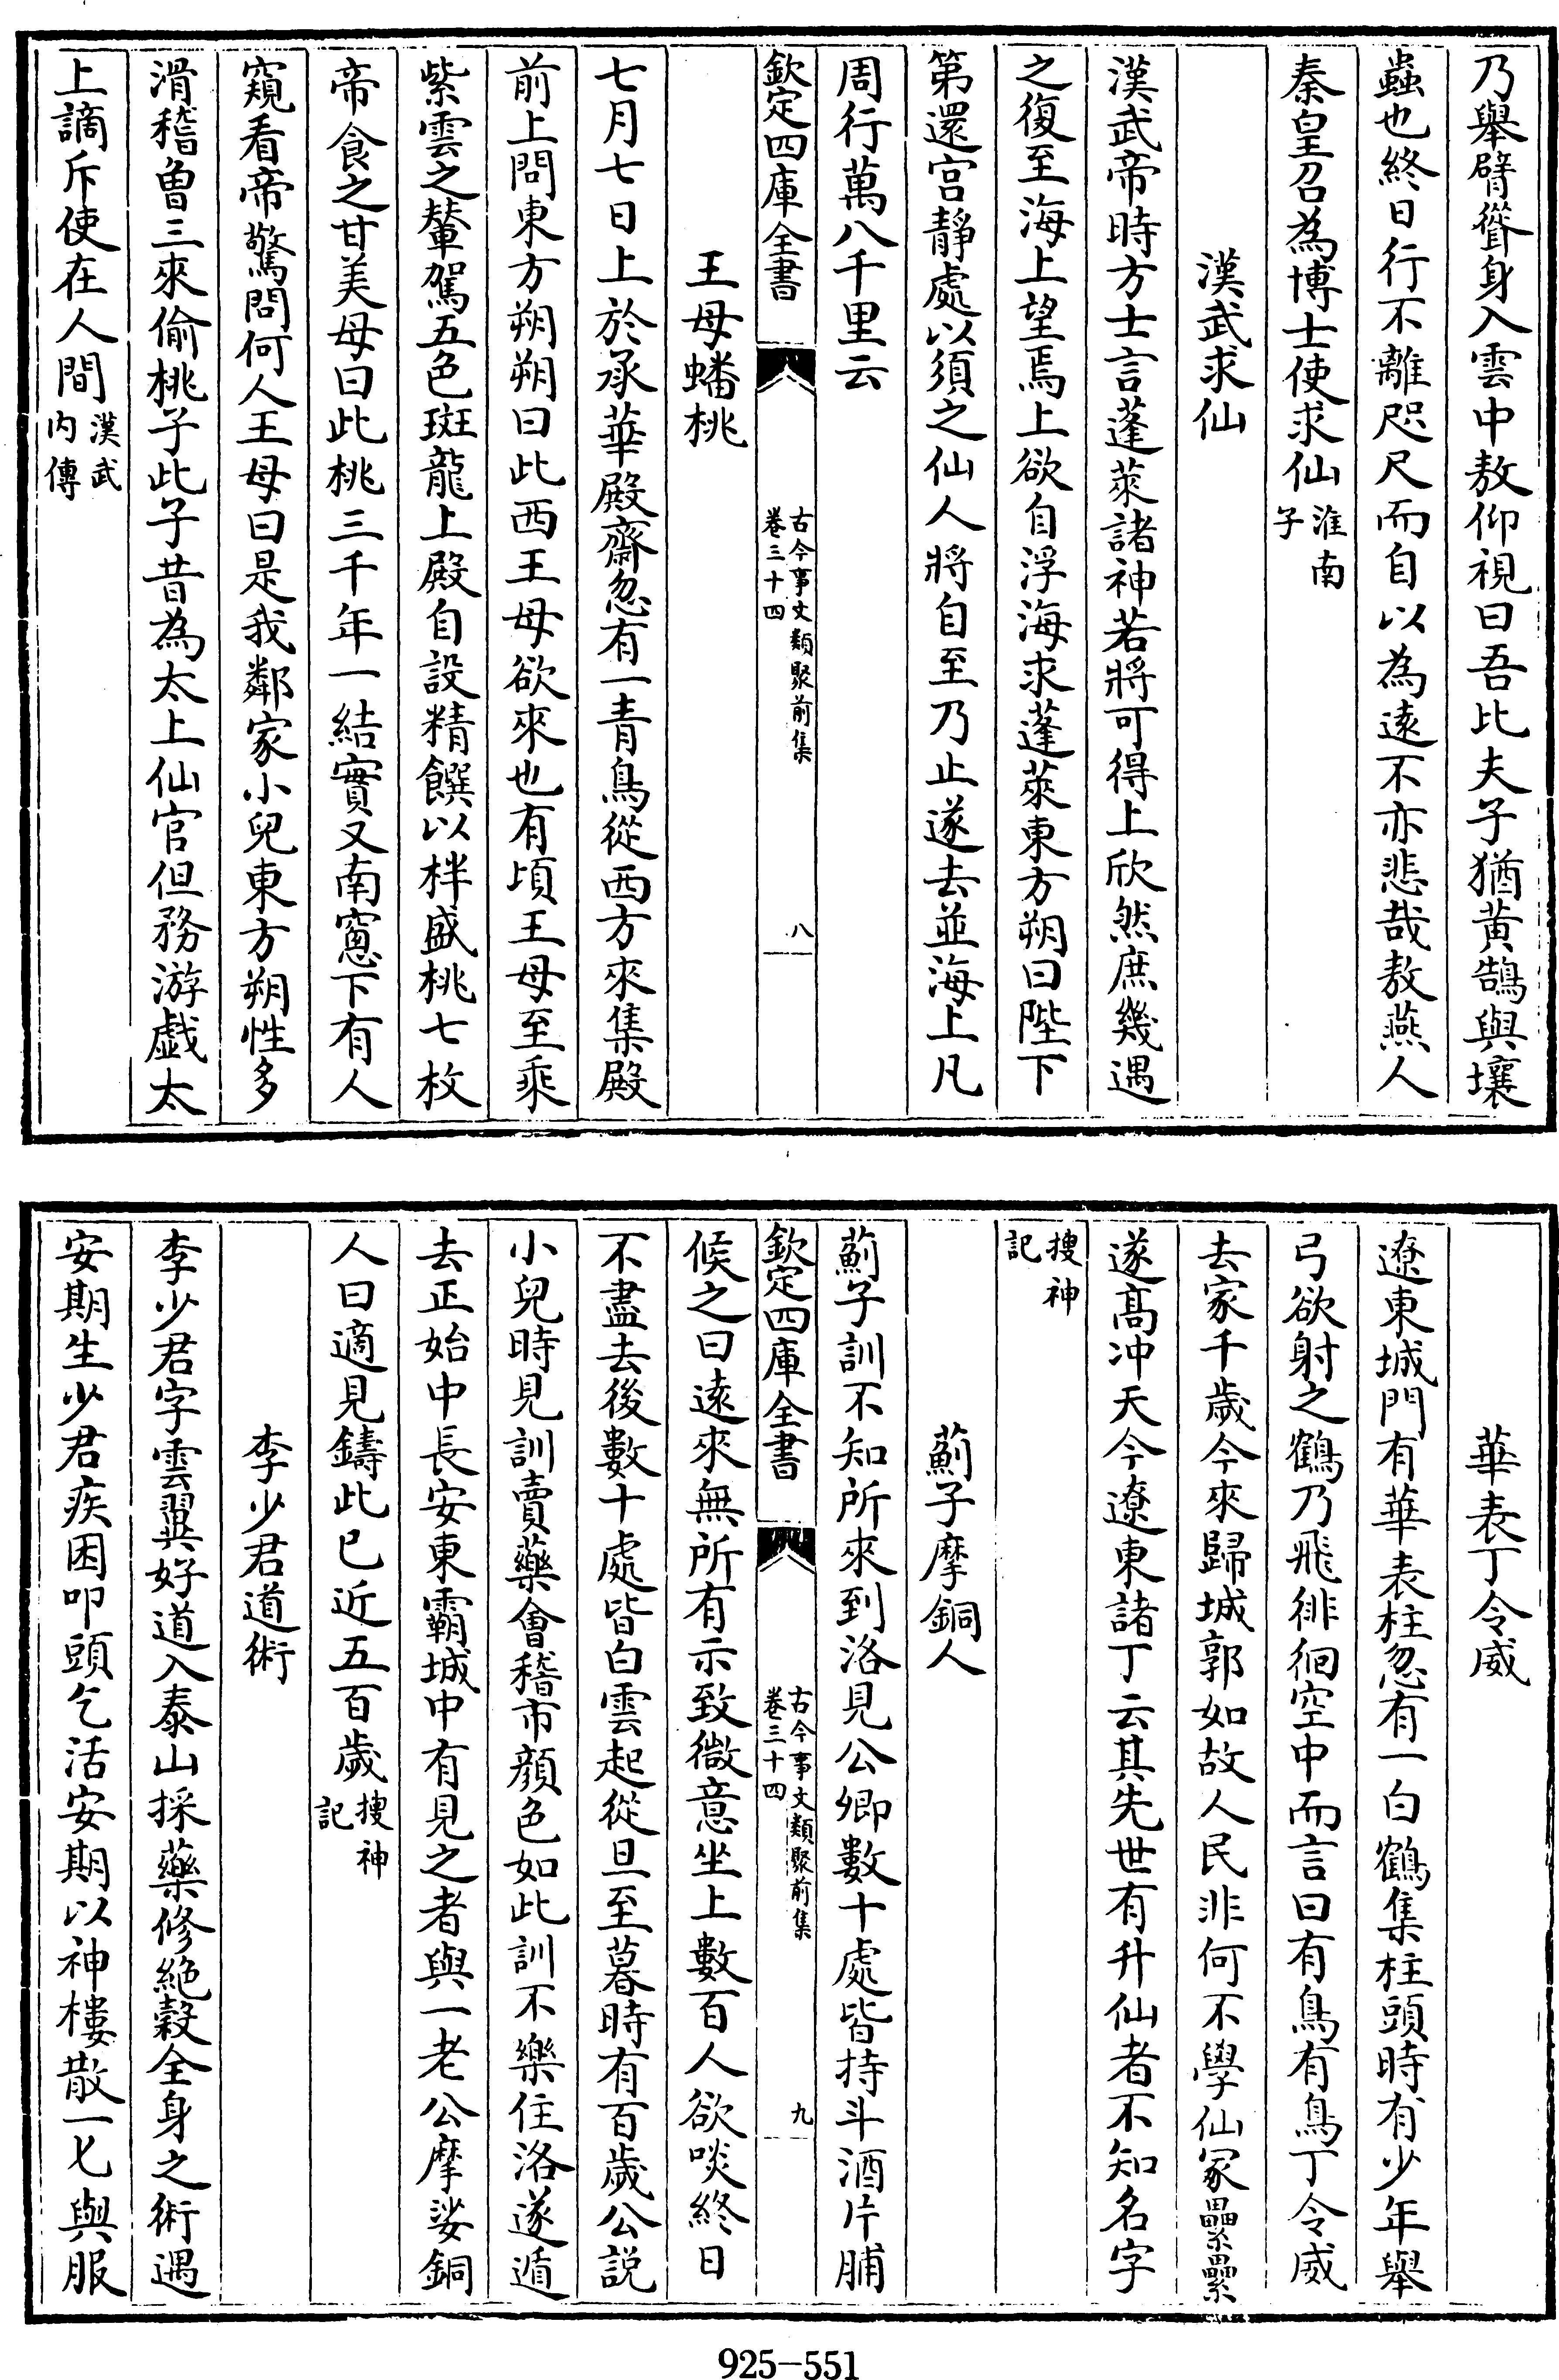 乃舉臂聳身入雲中敖仰視曰吾比夫子猶黄鵠與壤
蟲也終日行不離咫尺而自以為逺不亦悲哉敖燕人
秦皇召為博士使求仙淮南子
漢武求仙
漢武帝時方士言蓬萊諸神若將可得上欣然庶幾遇
之復至海上望焉上欲自浮海求蓬萊東方朔曰陛下
第還宫靜處以須之仙人將自至乃止遂去並海上凡
周行萬八千里云
欽定四庫全書 古今事文類聚前集卷三十四 八
王母蟠桃
七月七日上於承華殿齋忽有一青鳥從西方來集殿
前上問東方朔朔曰此西王母欲來也有頃王母至乘
紫雲之輦駕五色斑龍上殿自設精饌以柈盛桃七枚
帝食之甘美母曰此桃三千年一結實又南窻下有人
窺看帝驚問何人王母曰是我鄰家小兒東方朔性多
滑稽曽三來偷桃子此子昔為太上仙官但務游戯太
上謫斥使在人間漢武内傳
華表丁令威
遼東城門有華表柱忽有一白鶴集柱頭時有少年舉
弓欲射之鶴乃飛徘徊空中而言曰有鳥有鳥丁令威
去家千歲今來歸城郭如故人民非何不學仙冢纍纍
遂髙冲天今遼東諸丁云其先世有升仙者不知名字
搜神記
薊子摩銅人
薊子訓不知所來到洛見公卿數十處皆持斗酒片脯
欽定四庫全書 古今事文類聚前集卷三十四 九
候之曰逺來無所有示致微意坐上數百人欲啖終日
不盡去後數十處皆白雲起從旦至暮時有百歲公説
小兒時見訓賣藥會稽市顔色如此訓不樂住洛遂遁
去正始中長安東霸城中有見之者與一老公摩娑銅
人曰適見鑄此已近五百歲搜神記
李少君道術
李少君字雲翼好道入泰山採藥修絶穀全身之術遇
安期生少君疾困叩頭乞活安期以神樓散一匕與服
925-551